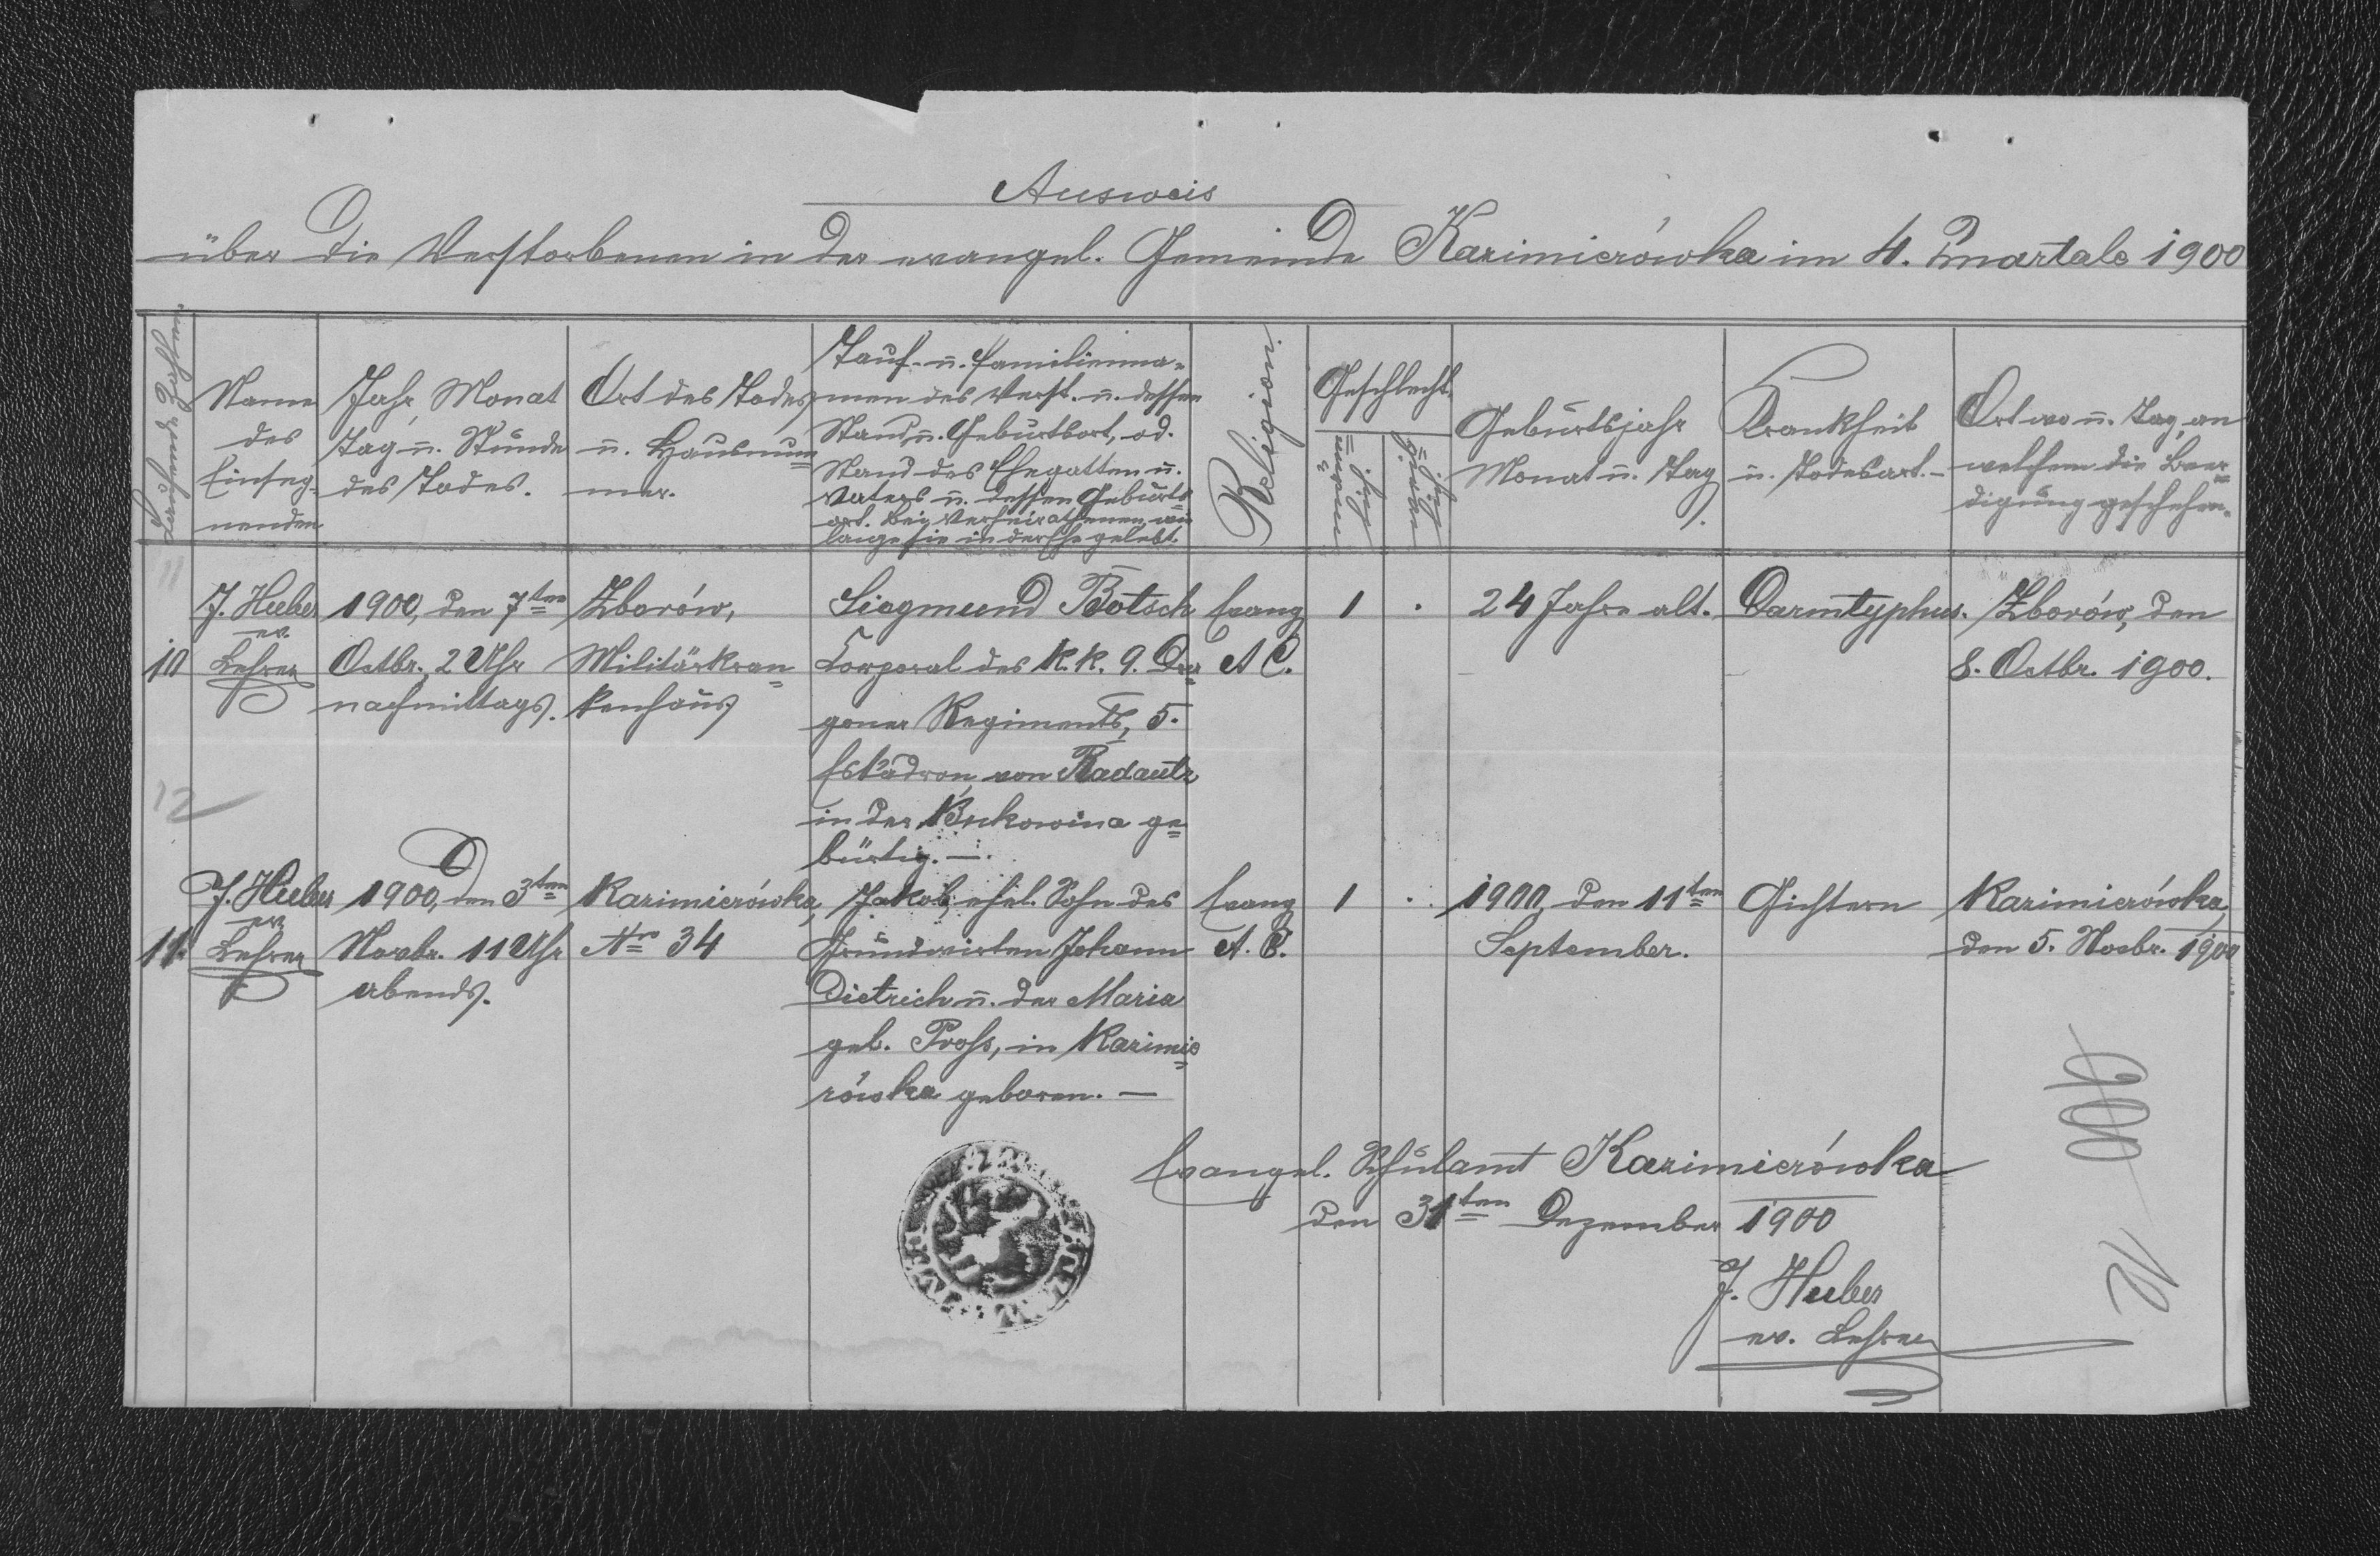 Ausweis
über die Verstorbenen in der evangel. Gemeinde Kazimierówka im 4. Quartale 1900
Laufende Zahlen
Name
des
Einseg-
nenden
Jahr, Monat
Tag u. Stunde
des Todes.
Ort des Todes
u. Hausnum=
mer.
Tauf- u. Familienna-
men des Verst. u. dessen
Stand u. Geburtsort, od.
Stand des Ehegatten u.
Vaters u. dessen Geburts=
ort. Bei Verheiratheten wie
lange sie in der Ehe gelebt.
Religion.
Geschlecht
Geburtsjahr
Monat u. Tag
Krankheit
u. Todesart.-
Ort wo u. Tag, an
welchem die Beer=
digung geschehen.
11
10
J. Huber
ev.
Lehrer
1900, den 7ten
Octbr. 2 Uhr
nachmittags.
Zborów,
Militärkran=
kenhaus
Siegmund Botsch
Corporal des k. k. 9. Dra=
goner Regiments, 5.
Eskadron, von Radautz
in der Bukowina ge=
bürtig. —.
Evang
A C.
1
.
24 Jahre alt.
Darmtyphus.
Zborów, den
8. Octbr. 1900.
12
11.
J. Huber
ev.
Lehrer
1900, den 3ten
Novbr. 11 Uhr
abends.
Kazimierówka,
Nro 34
Jakob, ehel. Sohn des
Grundwirten Johann
Dietrich u. der Maria
geb. Pross, in Kazimie=
rówka geboren. —
Evang
A. C.
1
.
1900, den 11ten
September.
Gichtern
Kazimierówka,
den 5. Novbr. 1900
Evangel. Schulamt Kazimierówka
den 31ten Dezember 1900
J. Huber
ev. Lehrer
900
12